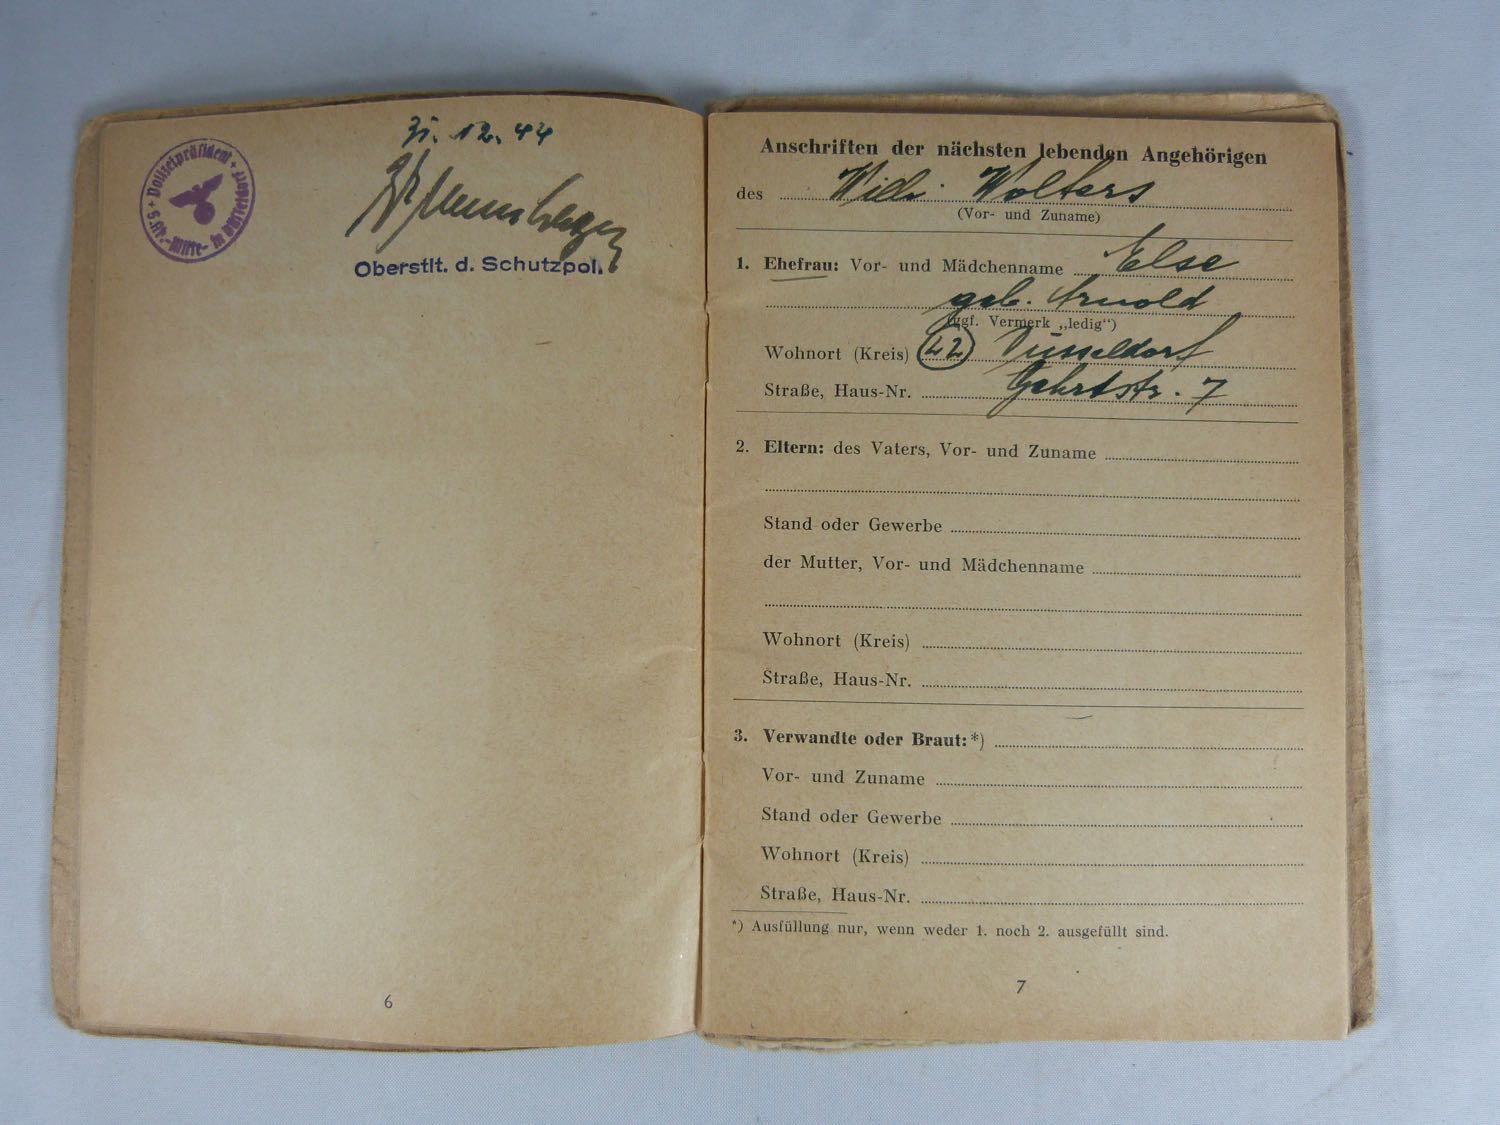 31. 12. 44
Oberstlt. d. Schutzpol.
Polizeipräsident + in Düsseldorf
-Mitte-
6
Anschriften der nächsten lebenden Angehörigen
des Willi Wolters
(Vor- und Zuname)
1. Ehefrau: Vor- und Mädchenname Else
geb. Arnold
(ggf. Vermerk „ledig“)
Wohnort (Kreis) (22) Düsseldorf
Straße, Haus-Nr. Gehrtstr. 7
2. Eltern: des Vaters, Vor- und Zuname
Stand oder Gewerbe
der Mutter, Vor- und Mädchenname
Wohnort (Kreis)
Straße, Haus-Nr.
3. Verwandte oder Braut:*)
Vor- und Zuname
Stand oder Gewerbe
Wohnort (Kreis)
Straße, Haus-Nr.
*) Ausfüllung nur, wenn weder 1. noch 2. ausgefüllt sind.
7